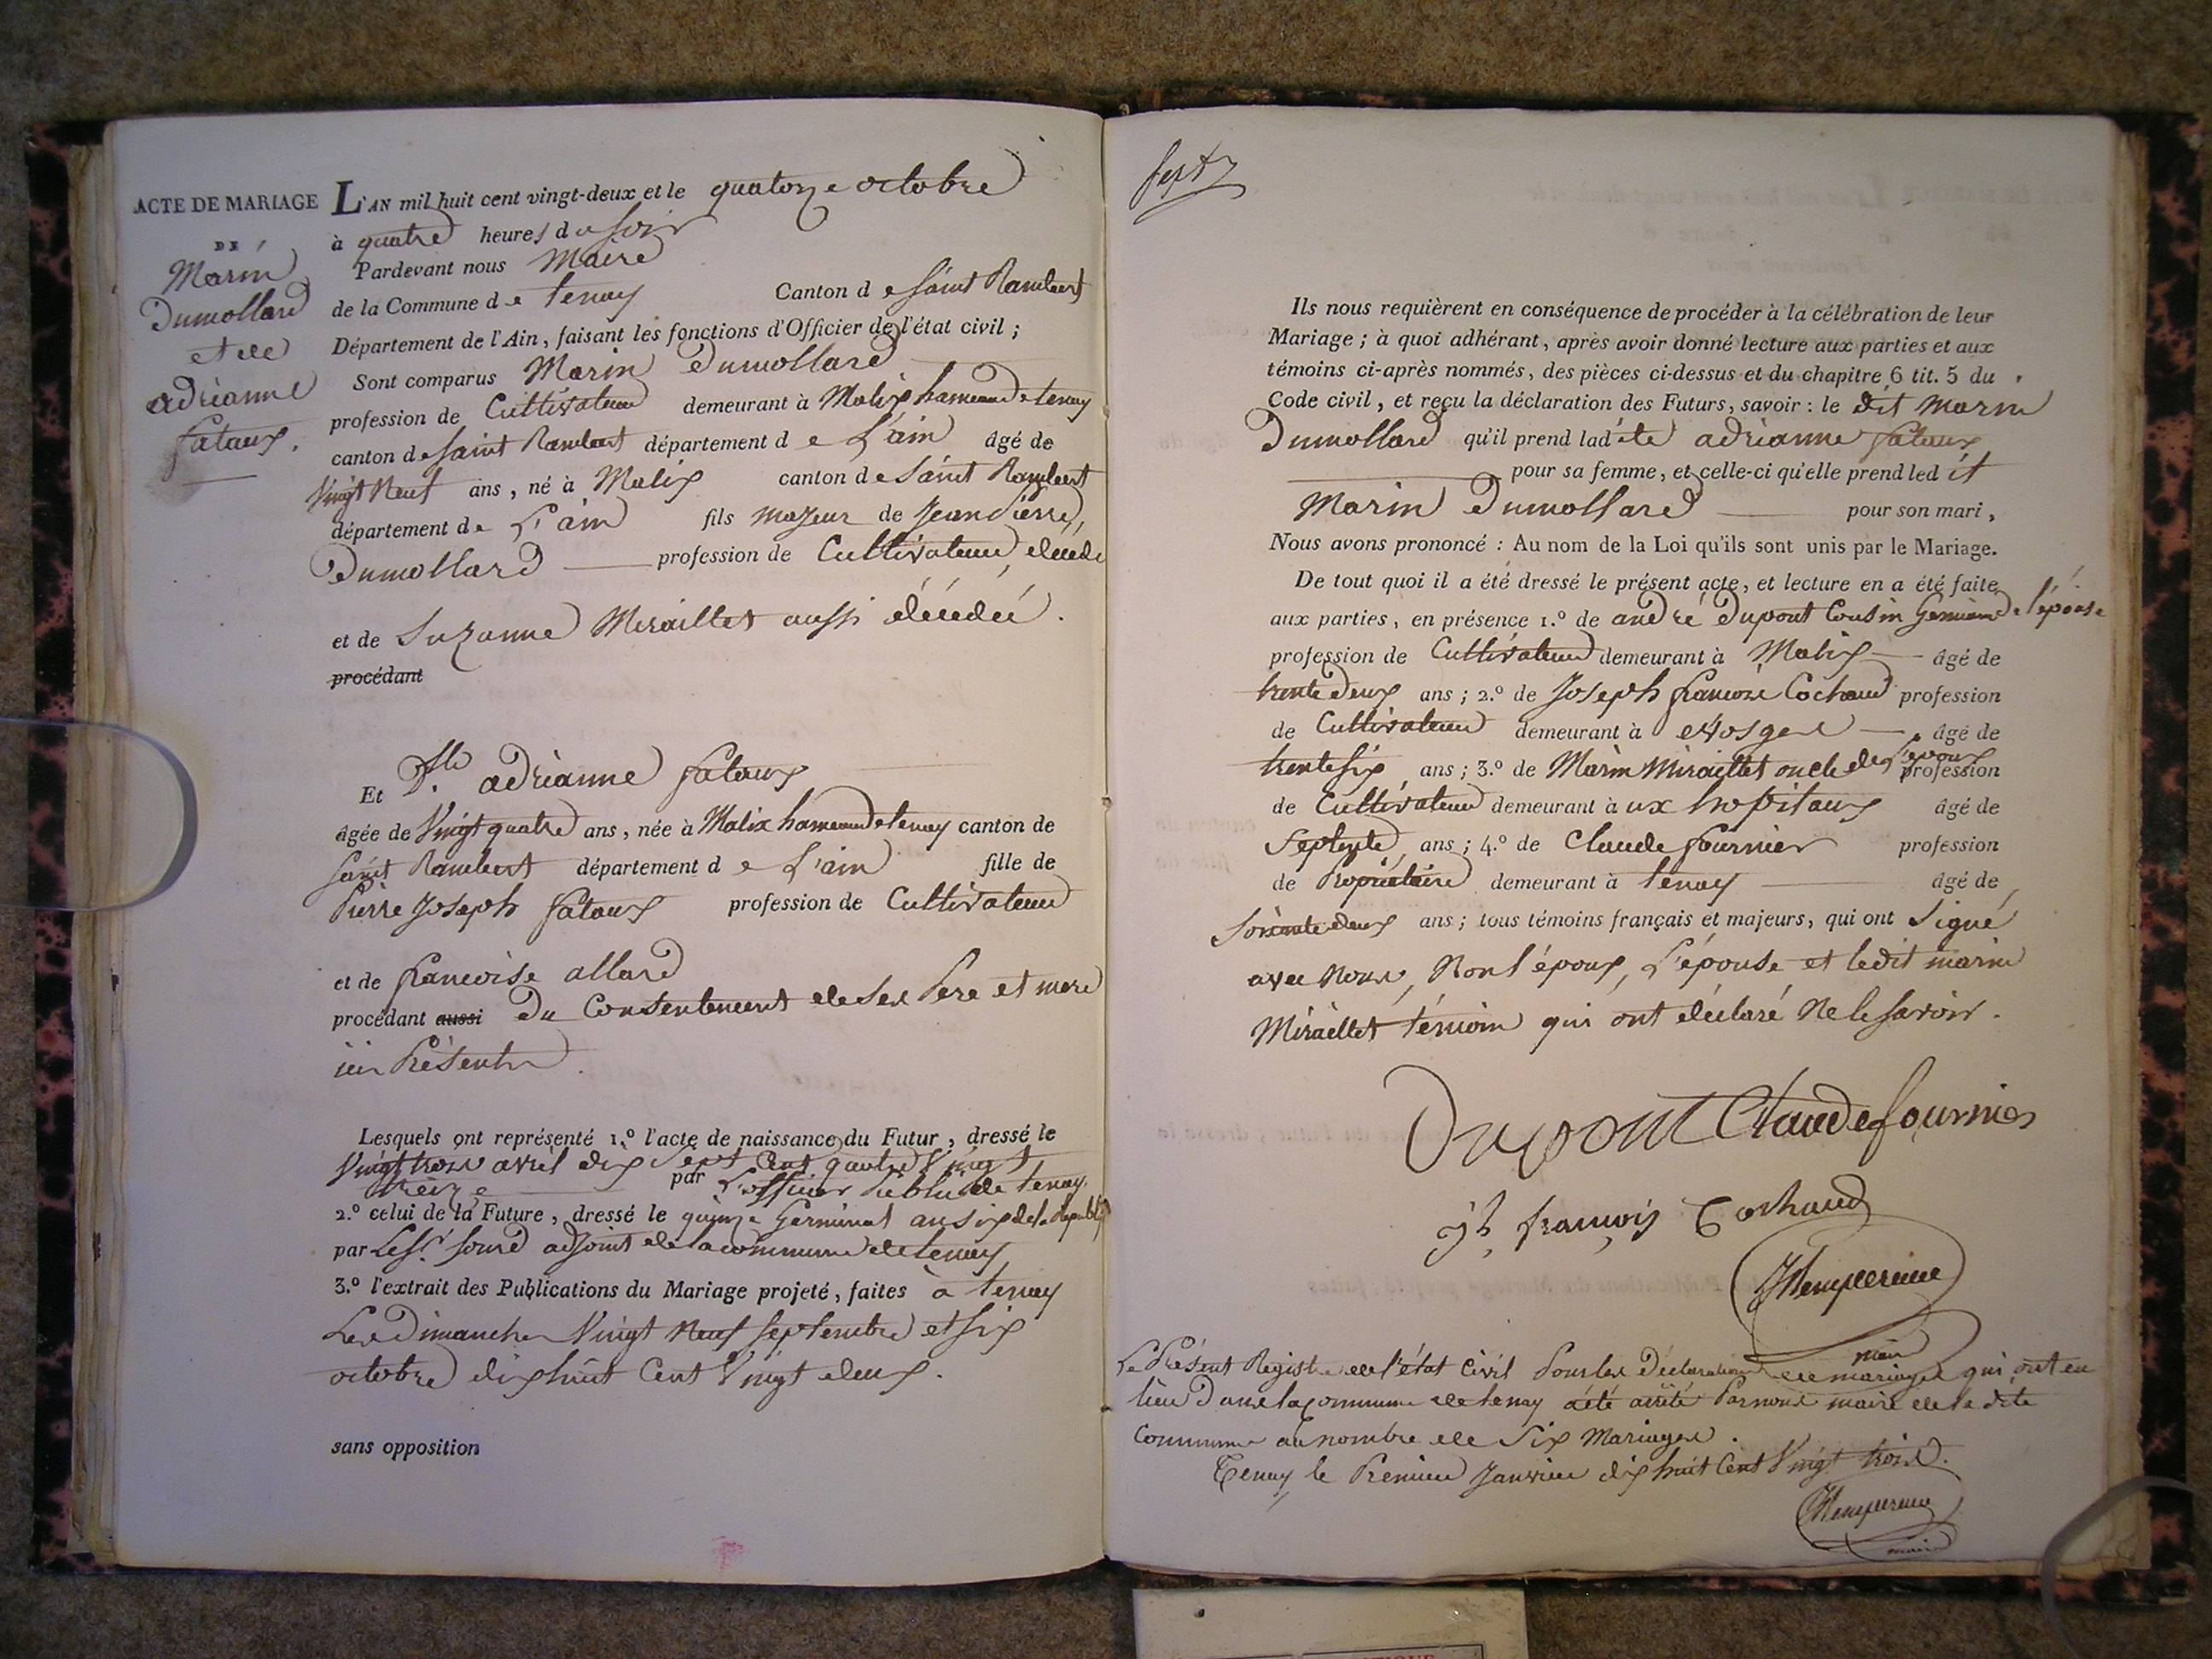 ACTE DE MARIAGE
DE
Marin
Dumollard
et de
adrianne
fataux.
L'AN mil huit cent vingt-deux et le quatorze octobre
à quatre heures du soir
Pardevant nous Maire
de la Commune de tenay Canton de saint Rambert
Département de l'Ain, faisant les fonctions d'Officier de l'état civil ;
Sont comparus Marin Dumollard
profession de Cultivateur demeurant à Malix hameau de tenay
canton de saint Rambert département de L'ain âgé de
Vingt Neuf ans, né à Malix canton de saint Rambert
département de L'ain fils majeur de Jean Pierre
Dumollard profession de Cultivateur, décédé
et de Suzanne Miraillet aussi décédée.
procédant
Et Dlle adrianne fataux
âgée de Vingt quatre ans, née à Malix hameau de tenay canton de
saint Rambert département de L'ain fille de
Pierre Joseph fataux profession de Cultivateur
et de francoise allard
procédant aussi Du Consentement de ses Pere et mere
ici Présents.
Lesquels ont représenté 1.º l'acte de naissance du Futur, dressé le
Vingt trois avril dix sept Cent quatre Vingt
treize par L'officier Public de tenay.
2.º celui de la Future, dressé le quinze Germinal an six de la Republiq
par Le Sr. sourd adjoint de la commune de tenay
3.º l'extrait des Publications du Mariage projeté, faites à tenay
Les Dimanches Vingt Neuf septembre et six
octobre dix huit Cent Vingt deux.
sans opposition
Ils nous requièrent en conséquence de procéder à la célébration de leur
Mariage ; à quoi adhérant, après avoir donné lecture aux parties et aux
témoins ci-après nommés, des pièces ci-dessus et du chapitre 6 tit. 5 du
Code civil, et reçu la déclaration des Futurs, savoir : le dit Marin
Dumollard qu'il prend ladite adrianne fataux
pour sa femme, et celle-ci qu'elle prend ledit
Marin Dumollard pour son mari,
Nous avons prononcé : Au nom de la Loi qu'ils sont unis par le Mariage.
De tout quoi il a été dressé le présent acte, et lecture en a été faite
aux parties, en présence 1.º de andré Dupont Cousin Germain de l'épouse
profession de Cultivateur demeurant à Malix âgé de
trente deux ans ; 2.º de Joseph francois Cochaud profession
de Cultivateur demeurant à evosges âgé de
trente six ans ; 3.º de Marin Miraillet oncle de l'époux profession
de Cultivateur demeurant à ux hopitaux âgé de
Septente ans ; 4.º de Claude fournier profession
de Propriétaire demeurant à tenay âgé de
soixante deux ans ; tous témoins français et majeurs, qui ont signé
avec Nous, Non l'époux, L'épouse et ledit marin
Miraillet témoin qui ont déclaré Ne le savoir.
Dupont Claude fournier
jh françois Cochaud
maire
Le Présent Registre de l'état Civil Pour les Déclarations de mariages qui ont eu
lieu Dans la commune de tenay a été arrêté Par nous maire de la dite
Commune au nombre de Six Mariages.
Tenay le Premier Janvier dix huit Cent Vingt trois.
maire